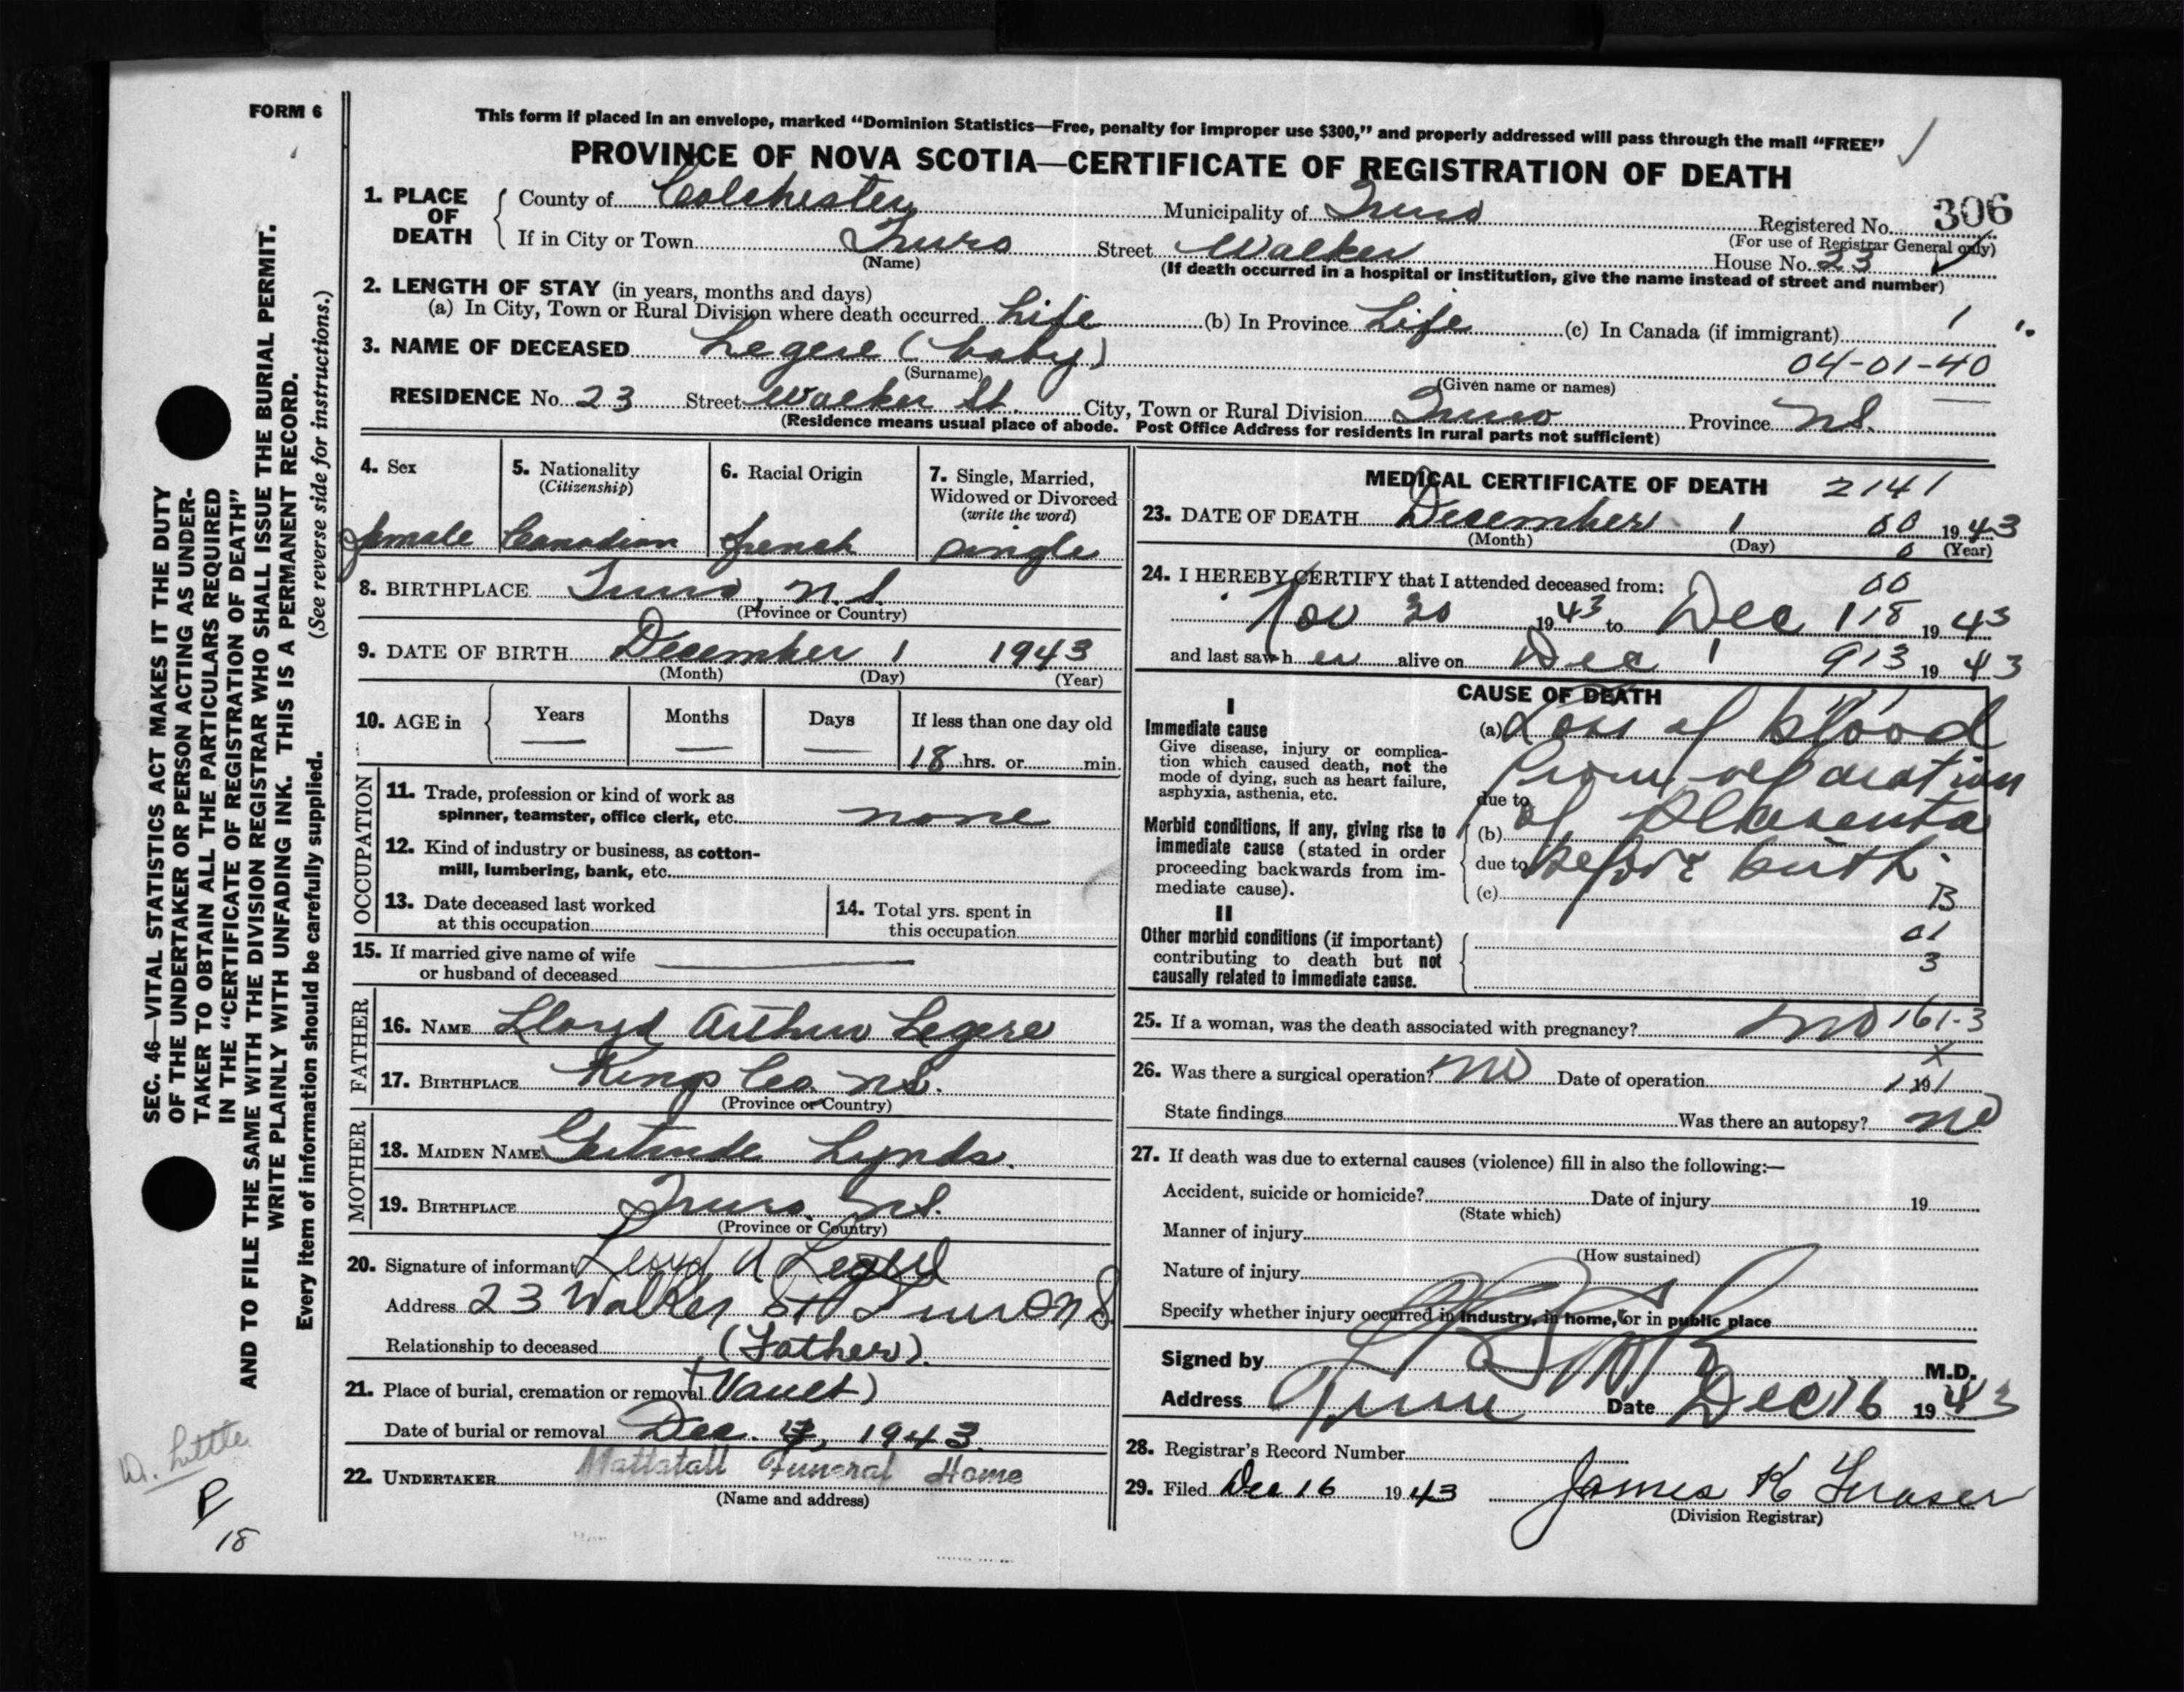 FORM 6
This form if placed in an envelope, marked “Dominion Statistics—Free, penalty for improper use $300,” and properly addressed will pass through the mail “FREE”
PROVINCE OF NOVA SCOTIA—CERTIFICATE OF REGISTRATION OF DEATH
1. PLACE OF DEATH County of Colchester Municipality of Truro Registered No. 306
(For use of Registrar General only)
If in City or Town Truro Street Walker House No. 23
(Name) (If death occurred in a hospital or institution, give the name instead of street and number)
2. LENGTH OF STAY (in years, months and days)
(a) In City, Town or Rural Division where death occurred Life (b) In Province Life (c) In Canada (if immigrant) 1 1.
3. NAME OF DECEASED Legere (baby) 04-01-40
(Surname) (Given name or names)
RESIDENCE No. 23 Street Walker St. City, Town or Rural Division Truro Province N.S.
(Residence means usual place of abode. Post Office Address for residents in rural parts not sufficient)
4. Sex
female
5. Nationality
(Citizenship)
Canadian
6. Racial Origin
french
7. Single, Married,
Widowed or Divorced
(write the word)
single
8. BIRTHPLACE Truro, N.S.
(Province or Country)
9. DATE OF BIRTH December 1 1943
(Month) (Day) (Year)
10. AGE in Years Months Days If less than one day old
— — — 18 hrs. or min.
OCCUPATION
11. Trade, profession or kind of work as
spinner, teamster, office clerk, etc. none
12. Kind of industry or business, as cotton-
mill, lumbering, bank, etc.
13. Date deceased last worked
at this occupation
14. Total yrs. spent in
this occupation
15. If married give name of wife
or husband of deceased
FATHER
16. NAME Lloyd Arthur Legere
17. BIRTHPLACE Kings Co. N.S.
(Province or Country)
MOTHER
18. MAIDEN NAME Gertrude Lynds.
19. BIRTHPLACE Truro, N.S.
(Province or Country)
20. Signature of informant Lloyd A Legere
Address 23 Walker St Truro N S
Relationship to deceased (Father).
21. Place of burial, cremation or removal (Vault)
Date of burial or removal Dec. , 1943
22. UNDERTAKER Mattatall Funeral Home
(Name and address)
MEDICAL CERTIFICATE OF DEATH 2141
23. DATE OF DEATH December 1 00 1943
(Month) (Day) 0 (Year)
24. I HEREBY CERTIFY that I attended deceased from: 00
Nov 30 1943 to Dec 1 18 1943
and last saw her alive on Dec 1 913 1943
CAUSE OF DEATH
I
Immediate cause
Give disease, injury or complica-
tion which caused death, not the
mode of dying, such as heart failure,
asphyxia, asthenia, etc.
Morbid conditions, if any, giving rise to
immediate cause (stated in order
proceeding backwards from im-
mediate cause).
(a) Loss of blood
from separation
due to
(b) of placenta
due to before birth.
(c) B
II
Other morbid conditions (if important)
contributing to death but not
causally related to immediate cause.
01
3
25. If a woman, was the death associated with pregnancy? no 161-3
x
26. Was there a surgical operation? no Date of operation 1 191
State findings Was there an autopsy? no
27. If death was due to external causes (violence) fill in also the following:—
Accident, suicide or homicide? Date of injury 19
(State which)
Manner of injury
(How sustained)
Nature of injury
Specify whether injury occurred in industry, in home, or in public place
Signed by M.D.
Address Truro Date Dec 16 1943
28. Registrar's Record Number
29. Filed Dec 16 1943 James K Fraser
(Division Registrar)
SEC. 46—VITAL STATISTICS ACT MAKES IT THE DUTY
OF THE UNDERTAKER OR PERSON ACTING AS UNDER-
TAKER TO OBTAIN ALL THE PARTICULARS REQUIRED
IN THE “CERTIFICATE OF REGISTRATION OF DEATH”
AND TO FILE THE SAME WITH THE DIVISION REGISTRAR WHO SHALL ISSUE THE BURIAL PERMIT.
WRITE PLAINLY WITH UNFADING INK. THIS IS A PERMANENT RECORD.
Every item of information should be carefully supplied. (See reverse side for instructions.)
Dr. Little
P
18